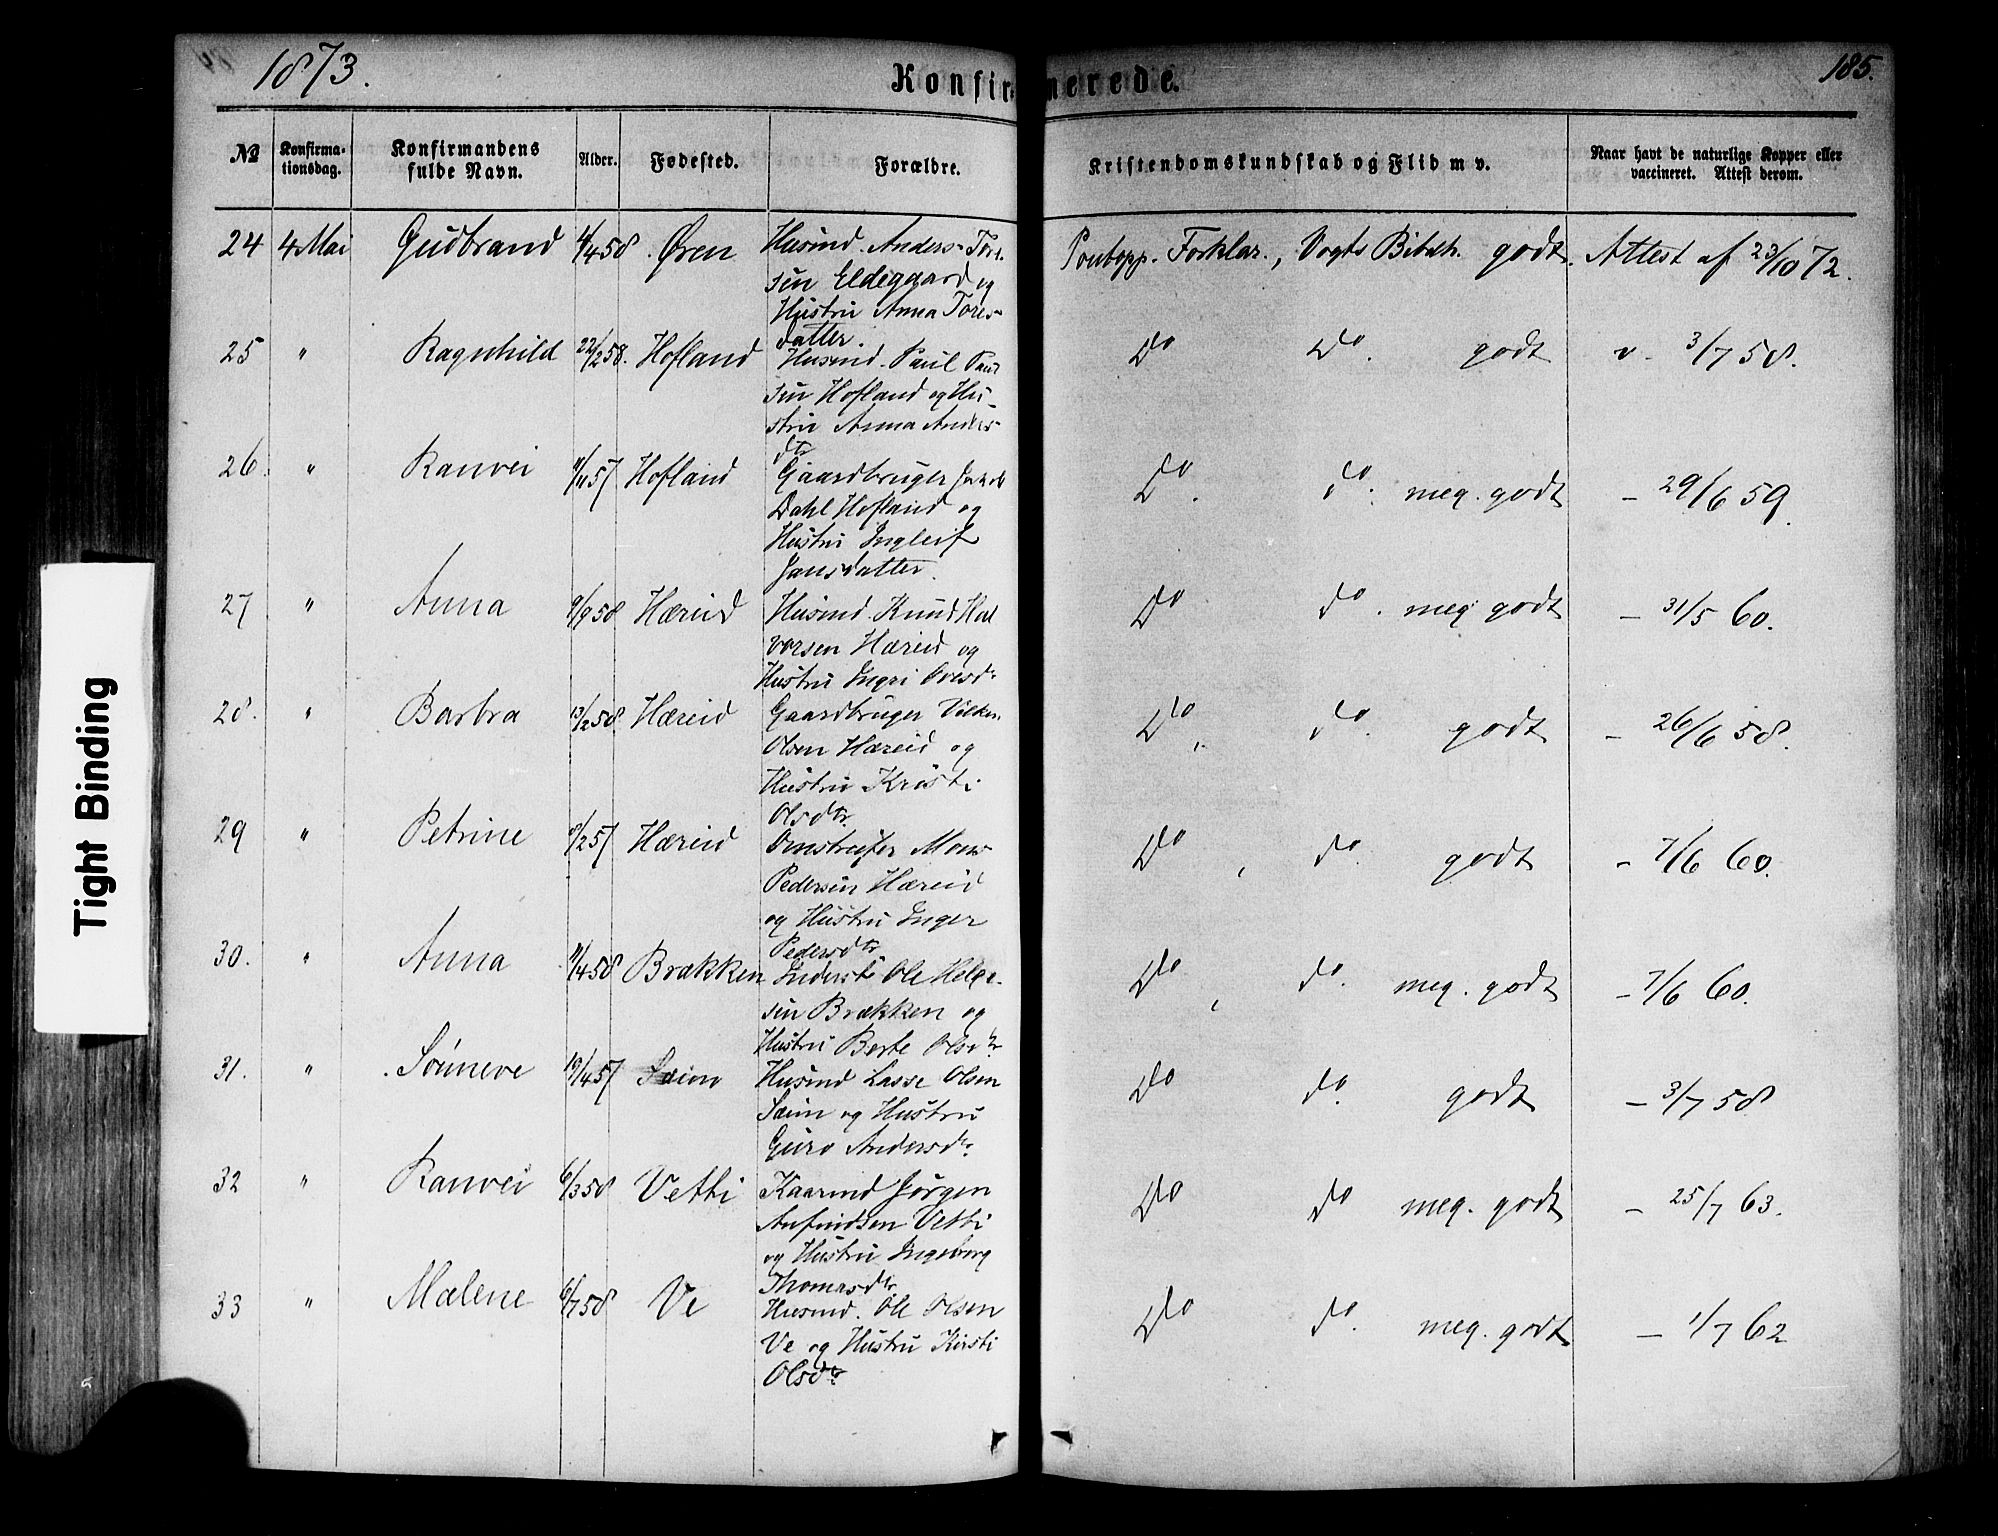 1873.
Konfirmerede.
185.
№ Konfirma-tionsdag. Konfirmandens fulde Navn. Alder. Fødested. Forældre. Kristendomskundskab og Flid m v. Naar havt de naturlige Kopper eller vaccineret. Attest derom.
24 4 Mai Gudbrand 4/4 58 Øren Husmd. Anders Tore- Pontopp. Forklar., Vogts Bibelh. godt. Attest af 23/10 72.
sen Eldegaard og
Hustru Anna Tores-
datter.
25 " Ragnhild 22/2 58. Hofland Husmd. Paul Paul Do Do. godt v. 3/7 58.
sen Hofland og Hu-
stru Anna Anders-
dtr
26. " Ranvei 11/11 57 Hofland Gaardbruger Do. do. meg. godt – 29/6 59.
Dahl Hofland og
Hustru Ingleif
Jansdatter.
27 " Anna 9/9 58 Hæreid Husmd. Knud Hal Do do. meg godt – 31/5 60.
vorsen Hæreid og
Hustru Ingri Ovesdr
28. " Barbra 13/2 58. Hæreid Gaardbruger Do. do. godt – 26/6 58.
Olsen Hæreid og
Hustru Kristi
Olsdtr.
29 " Petrine 8/2 57 Hæreid Mons Do, do. godt – 7/6 60.
Pedersen Hæreid
og Hustru Inger
Pedersdtr
30. " Anna 11/4 58 Brækken Inderste Ole Helge- Do, do. meg. godt – 7/6 60.
sen Brækken og
Hustru Berte Olsdtr
31. " Sønneve 19/4 57 Sæim Husmd Lasse Olsen Do do. godt – 3/7 58
Sæim og Hustru
Guro Andersdtr.
32 " Ranvei 6/3 58 Vetti Kaarmd Jørgen Do do meg. godt – 25/7 63.
Anfindsen Vetti
og Hustru Ingeborg
Thomasdtr
33 " Malene 6/7 58 Ve Husmd. Ole Olsen Do do. meg. godt – 1/7 62
Ve og Hustru Kirsti
Olsdtr
Tight Binding